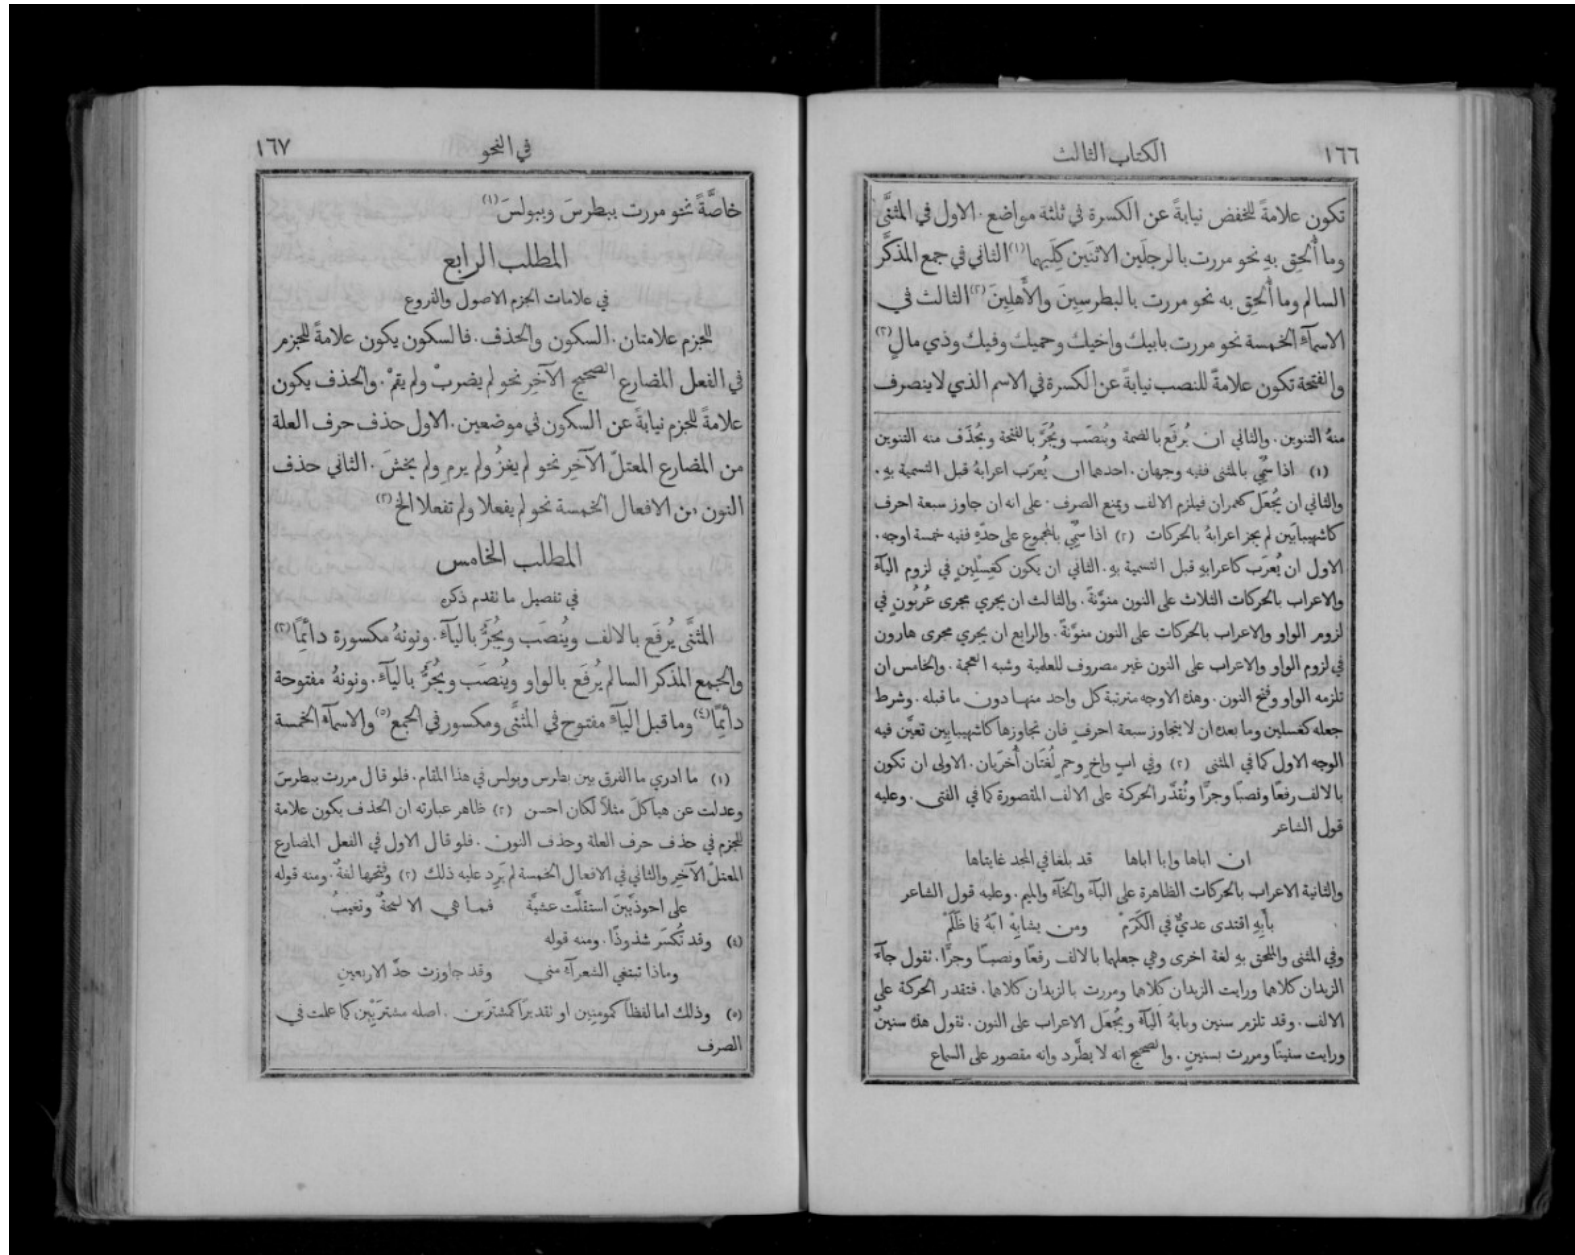 ١٦٦
الكتاب الثالث
تكون علامةً للخفض نيابةً عن الكسرة في ثلثة مواضع. الاول في المثنَّى
وما أُلحِق بهِ نحو مررت بالرجلَين الاثنَين كِلَيهما (١) الثاني في جمع المذكَّر
السالم وما أُلحِق به نحو مررت بالبطرسِينَ والأَهلِينَ (٢) الثالث في
الاسمآءِ الخمسة نحو مررت بابيك واخيك وحميك وفيك وذي مالٍ (٣)
والفتحة تكون علامةً للنصب نيابةً عن الكسرة في الاسم الذي لا ينصرف
منهُ التنوين. والثاني ان يُرفَع بالضمة ويُنصَب ويُجَرَّ بالفتحة ويُحذَف منه التنوين
(١) اذا سُمِّي بالمثنى ففيه وجهان. احدهما ان يُعرَب اعرابهُ قبل التسمية بهِ.
والثاني ان يُجعَل كعمران فيلزم الالف ويمنع الصرف. على انه ان جاوز سبعة احرف
كاشهيبابَين لم يجز اعرابهُ بالحركات (٢) اذا سُمِّي بالمجموع على حدّهِ ففيه خمسة اوجه.
الاول ان يُعرَب كاعرابهِ قبل التسمية بهِ. الثاني ان يكون كغِسْلِينٍ في لزوم اليآءِ
والاعراب بالحركات الثلاث على النون منوَّنةً. والثالث ان يجري مجرى عُرُبُونٍ في
لزوم الواو والاعراب بالحركات على النون منوَّنةً. والرابع ان يجري مجرى هارون
في لزوم الواو والاعراب على النون غير مصروف للعلمية وشبه العجمة. والخامس ان
تلزمه الواو وفتح النون. وهذه الاوجه مترتبة كل واحد منها دون ما قبله. وشرط
جعله كغسلين وما بعدهُ ان لا يتجاوز سبعة احرفٍ فان تجاوزها كاشهيبابين تعيَّن فيه
الوجه الاول كما في المثنى (٣) وفي ابٍ واخٍ وحمٍ لُغتَان أُخرَيان. الاولى ان تكون
بالالف رفعًا ونصبًا وجرًّا وتُقدَّر الحركة على الالف المقصورة كما في الفتى. وعليه
قول الشاعر
ان اباها وابا اباها قد بلغا في المجد غايتاها
والثانية الاعراب بالحركات الظاهرة على البآءِ والخآءِ والميم. وعليه قول الشاعر
بأَبِهِ اقتدى عديٌّ في الكَرَمْ ومن يشابِهْ ابَهُ فما ظَلَمْ
وفي المثنى والملحق بهِ لغة اخرى وهي جعلهما بالالف رفعًا ونصبًا وجرًّا. تقول جآءَ
الزيدان كلاهما ورايت الزيدان كلاهما ومررت بالزيدان كلاهما. فتقدر الحركة على
الالف. وقد تلزم سنين وبابهُ اليآءَ ويُجعَل الاعراب على النون. تقول هذه سنينٌ
ورايت سنينًا ومررت بسنينٍ. والصحيح انه لا يطَّرد وانه مقصور على السماع
في النحو
١٦٧
خاصَّةً نحو مررت ببطرسَ وببولسَ (١)
المطلب الرابع
في علامات الجزم الاصول والفروع
للجزم علامتان. السكون والحذف. فالسكون يكون علامةً للجزم
في الفعل المضارع الصحيح الآخِر نحو لم يضربْ ولم يقمْ. والحذف يكون
علامةً للجزم نيابةً عن السكون في موضعين. الاول حذف حرف العلة
من المضارع المعتلّ الآخِر نحو لم يغزُ ولم يرمِ ولم يخشَ. الثاني حذف
النون من الافعال الخمسة نحو لم يفعلا ولم تفعلا الخ (٢)
المطلب الخامس
في تفصيل ما تقدم ذكره
المثنَّى يُرفَع بالالف ويُنصَب ويُجَرُّ باليآءِ. ونونهُ مكسورة دائمًا (٣)
والجمع المذكر السالم يُرفَع بالواو ويُنصَب ويُجَرُّ باليآءِ. ونونهُ مفتوحة
دائمًا (٤) وما قبل اليآءِ مفتوح في المثنَّى ومكسور في الجمع (٥) والاسمآءُ الخمسة
(١) ما ادري ما الفرق بين بطرس وبولس في هذا المقام. فلو قال مررت ببطرسَ
وعدلت عن هياكلَ مثلًا لكان احسن (٢) ظاهر عبارته ان الحذف يكون علامة
للجزم في حذف حرف العلة وحذف النون. فلو قال الاول في الفعل المضارع
المعتلّ الآخِر والثاني في الافعال الخمسة لم يَرِد عليه ذلك (٣) وفتحها لغةٌ. ومنه قوله
على احوذيَّينَ استقلَّت عشيَّة فما هي الا لمحةٌ وتغيبُ
(٤) وقد تُكسَر شذوذًا. ومنه قوله
وماذا تبتغي الشعرآءُ مني وقد جاوزت حدَّ الاربعينِ
(٥) وذلك اما لفظًا كمومِنِين او تقديرًا كمشترَين. اصله مشترَيِيْن كما علمت في
الصرف